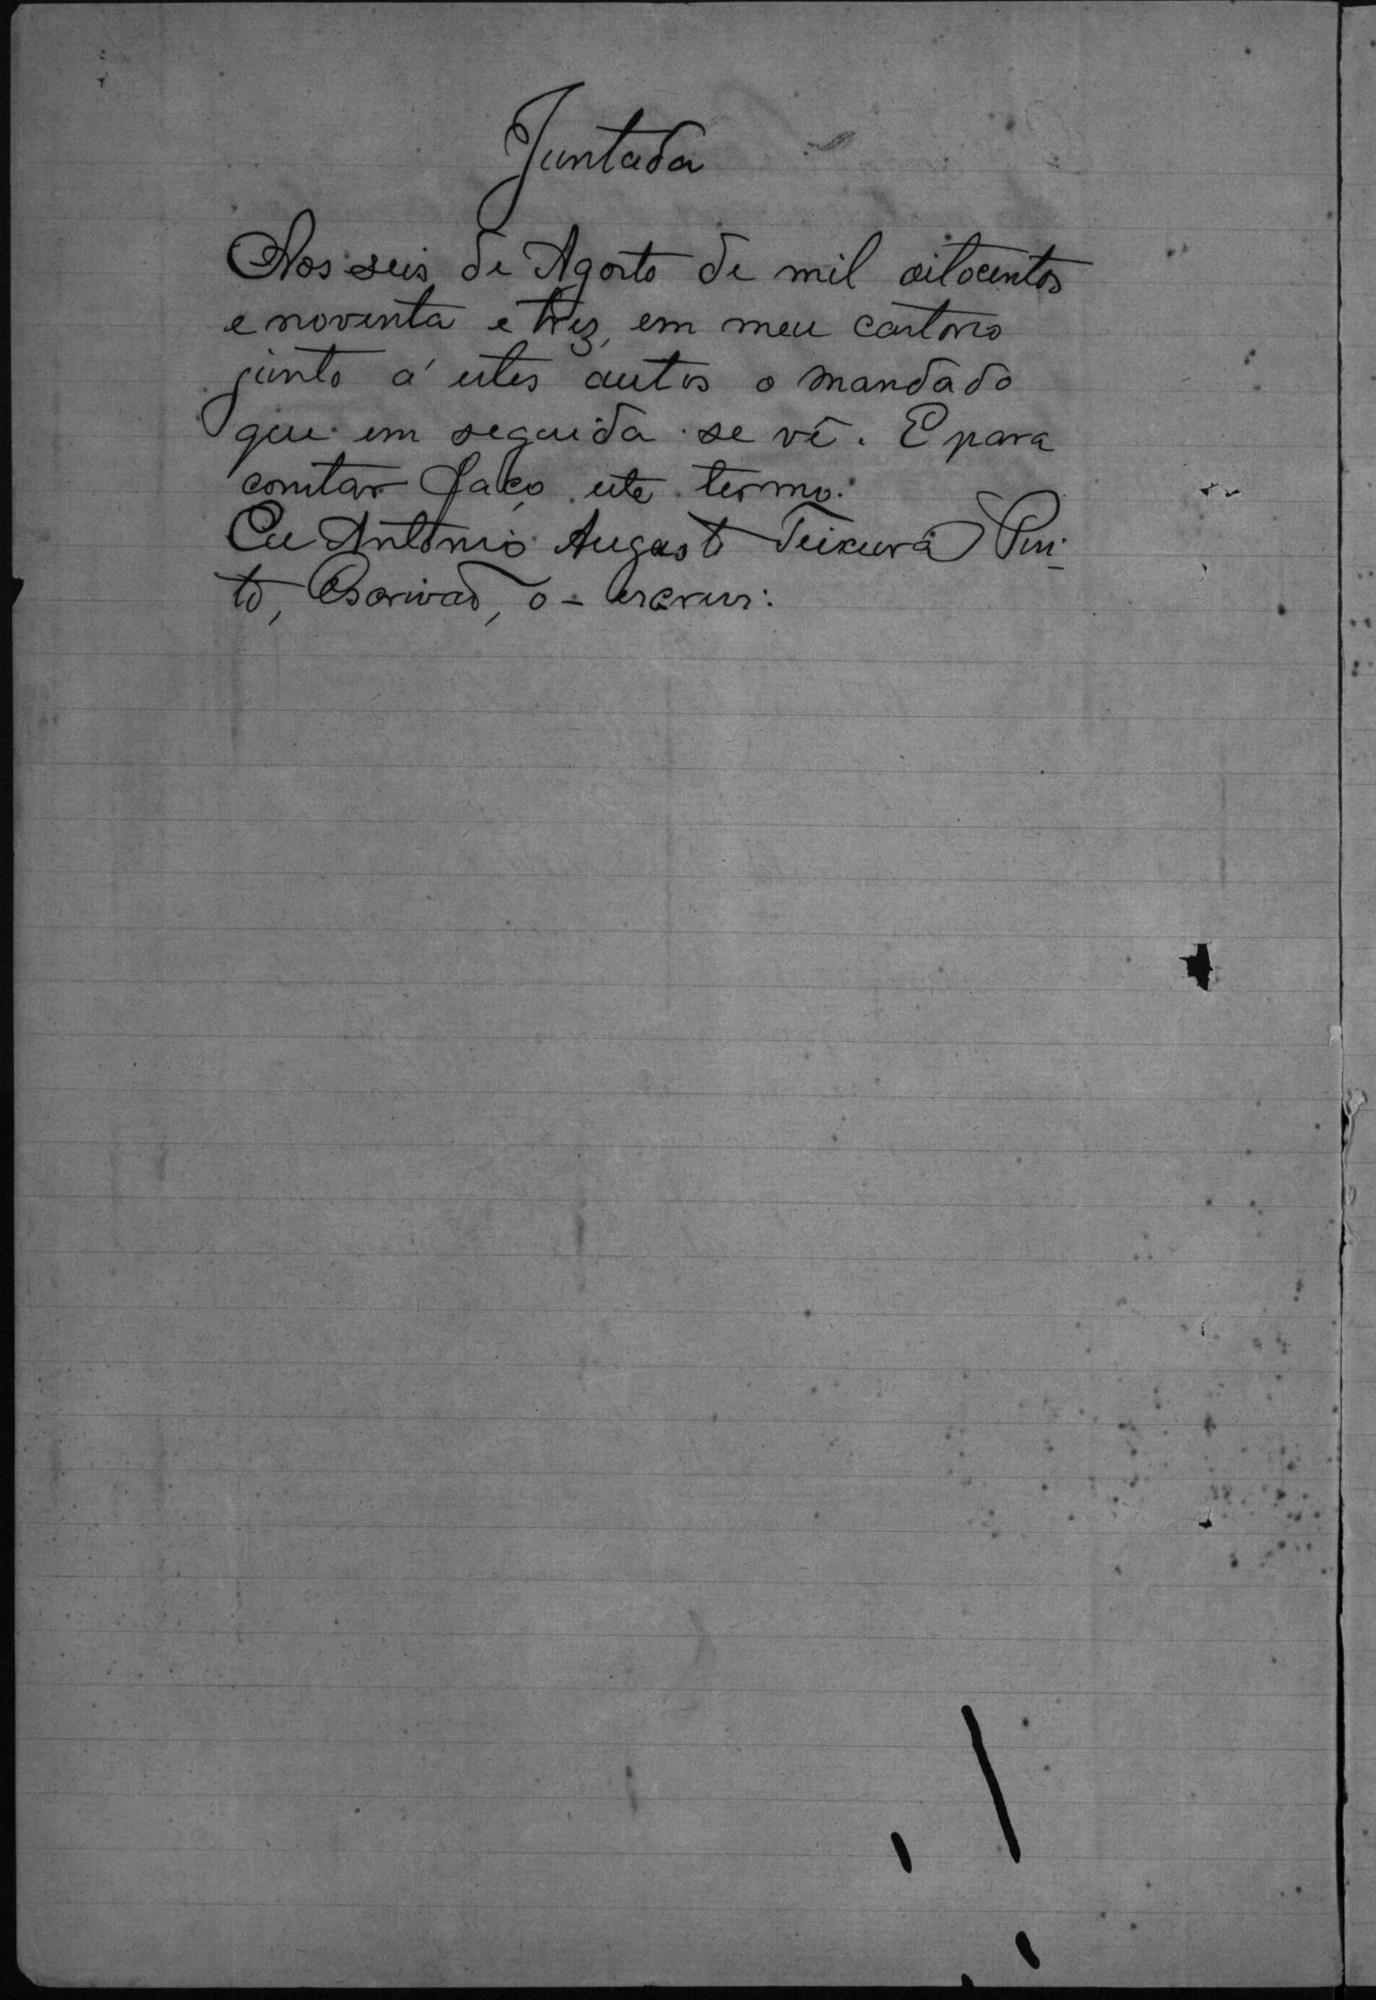 Juntada
Aos seis de Agosto de mil oitocentos
e noventa e trez, em meu cartorio
junto á estes autos o mandado
que em seguida se vê. E para
constar faço este termo.
Eu Antonio Augusto Teixeira Pin-
to, Escrivão, o - escrevi: